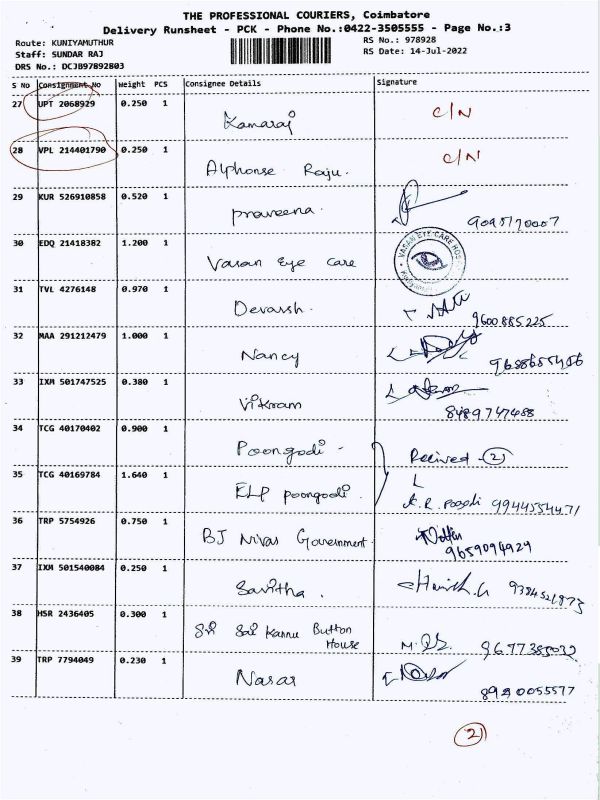 THE PROFESSIONAL COURIERS, Coimbatore
Delivery Runsheet - PCK - Phone No.:0422-3505555 - Page No.:3
Route: KUNIYAMUTHUR
Staff: SUNDAR RAJ
DRS No.: DCJB97892803
RS No.: 978928
RS Date: 14-Jul-2022
S No Consignment No Weight PCS Consignee Details Signature
27 UPT 2068929 0.250 1 Kamaraj C/N
28 VPL 214401790 0.250 1 Alphonse Raju. C/N
29 KUR 526910858 0.520 1 praveena.
30 EDQ 21418382 1.200 1 Vasan Eye care VASAN EYE CARE
31 TVL 4276148 0.970 1 Devassh. 9600885225
32 MAA 291212479 1.000 1 Nancy
33 IXM 501747525 0.380 1 Vikram 8489747488
34 TCG 40170402 0.900 1 Poongodi - Recived - 2
35 TCG 40169784 1.640 1 ELP poongodi.
36 TRP 5754926 0.750 1 BJ Nivas Government. 9659094929
37 IXM 501540084 0.250 1 Savitha.
38 HSR 2436405 0.300 1 Sri Sai Kannu Button House
39 TRP 7794049 0.230 1 Nasar
21